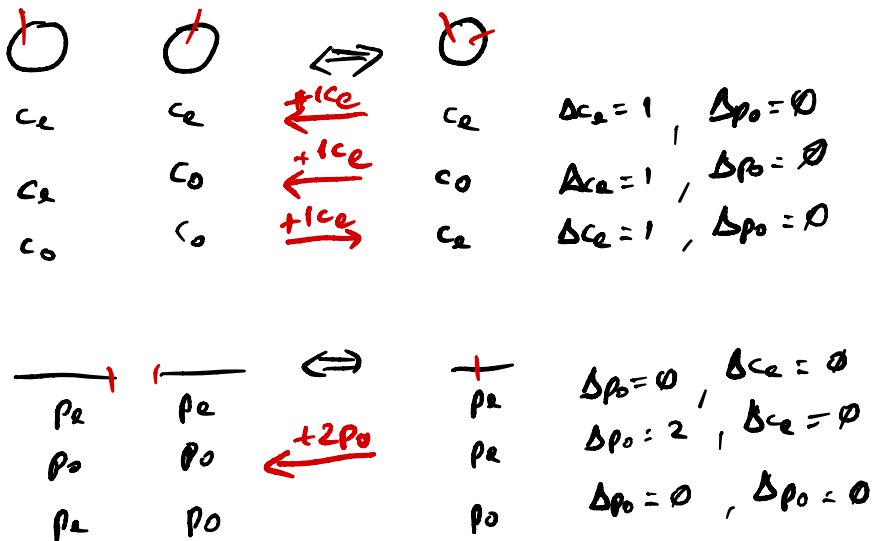 +1ce
ce ce ce Δce = 1 , Δpo = ∅
+1ce
ce co co Δce = 1 , Δpo = ∅
+1ce
co co ce Δce = 1 , Δpo = ∅
pe pe pe Δpo = ∅ , Δce = ∅
+2po
po po pe Δpo = 2 , Δce = ∅
pe po po Δpo = ∅ , Δpo = ∅